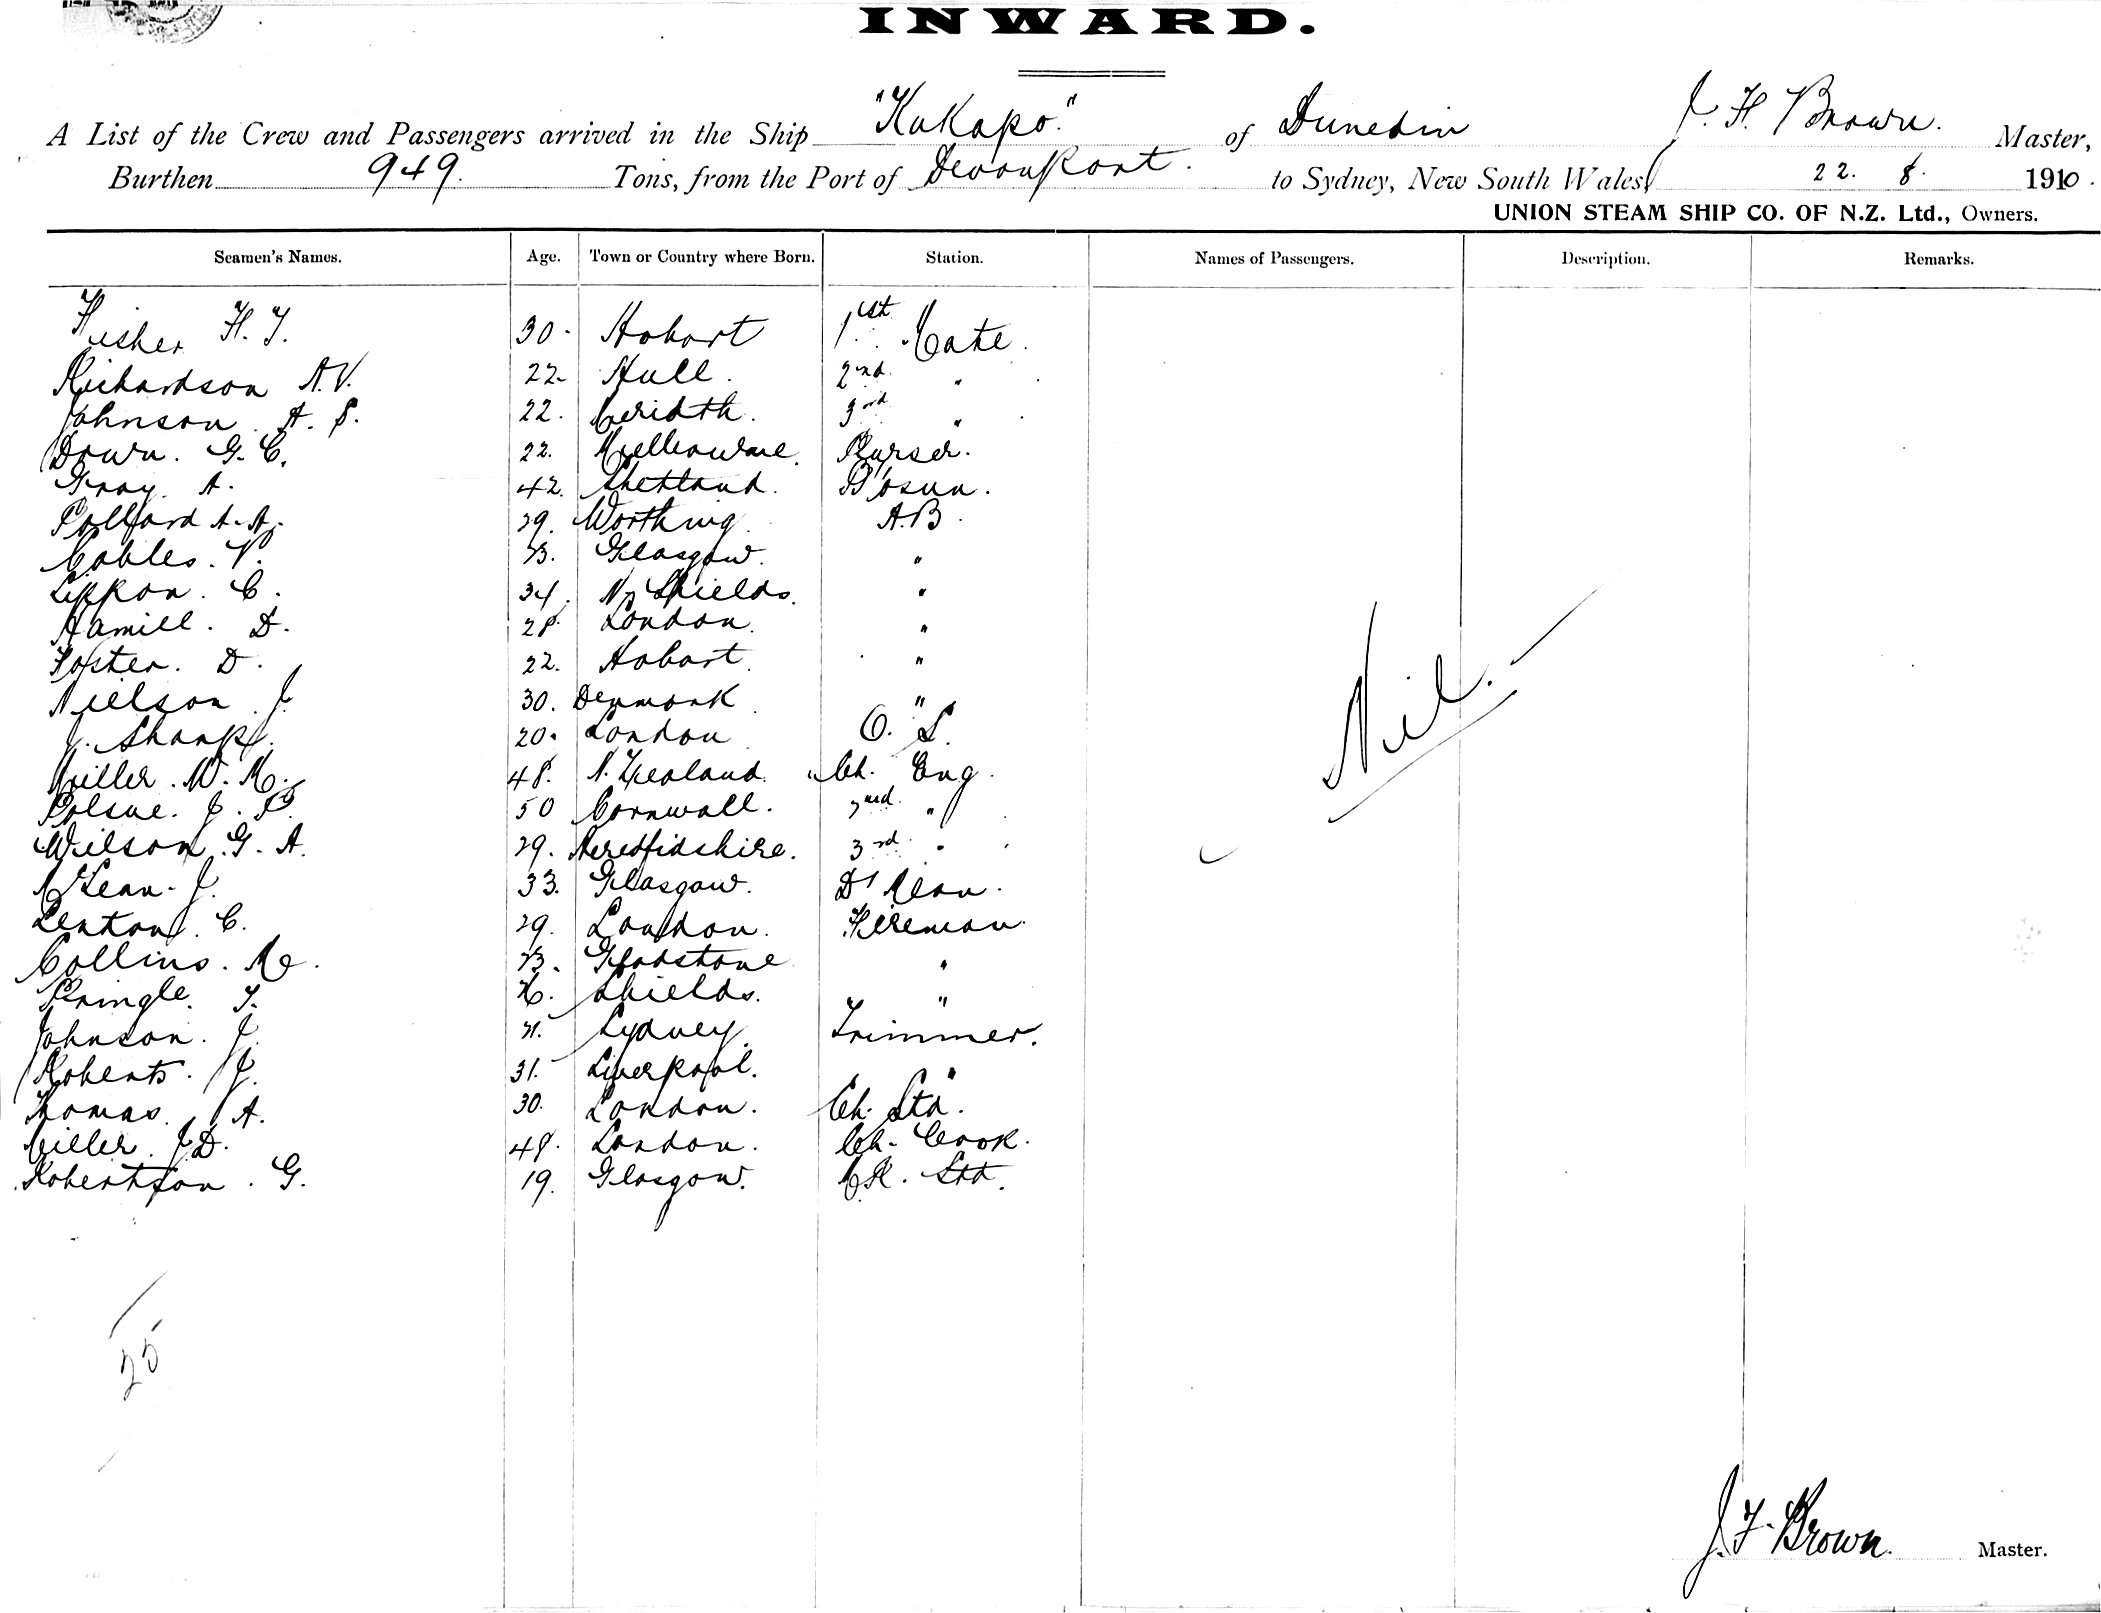 INWARD.
A List of the Crew and Passengers arrived in the Ship "Kakapo" of Dunedin J. F. Brown. Master,
Burthen 949. Tons, from the Port of Devonport. to Sydney, New South Wales, 22. 8. 1910.
UNION STEAM SHIP CO. OF N.Z. Ltd., Owners.
Seamen's Names. Age. Town or Country where Born. Station. Names of Passengers. Description. Remarks.
Fisher F. T. 30. Hobart 1st Mate.
Richardson A. V. 22. Hull. 2nd "
Johnson. A. S. 22. 3rd "
Down. G. C. 22. Melbourne. Purser.
Gray. A. 42. Shetland. B'osun.
Pollard A. A. 29. Worthing. A.B.
Cobles. V. 23. Glasgow. "
Lippon. C. 34. No Shields. "
Hamill. D. 28. London. "
Foster. D. 22. Hobart. "
Nielson. J. 30. Denmark "
J. Sharp. 20. London O. S.
Miller. W. M. 48. N. Zealand. Ch. Eng.
Polsue. J. P. 50 Cornwall. 2nd "
Wilson. G. A. 29. 3rd "
McLean. J. 33. Glasgow. D'kman.
Lenton. C. 29. London. Fireman.
Collins. M. 23. Gladstone "
Pringle. T. 26. Shields. "
Johnson. J. 21. Sydney. Trimmer.
Roberts. J. 31. Liverpool. "
Thomas. A. 30. London. Ch. Std.
Miller. J. D. 48. London. Ch. Cook.
Robertson. G. 19. Glasgow. Std.
Nil.
25
J. F. Brown. Master.